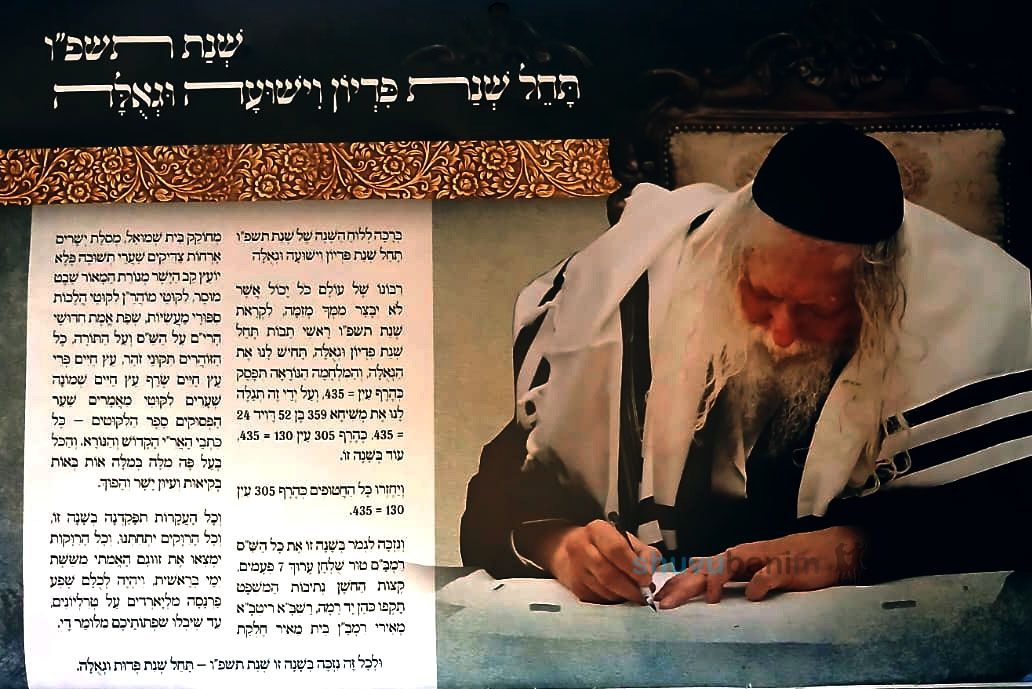 שְׁנַת תשפ״ו
תָּחֵל שְׁנַת פִּדְיוֹן וִישׁוּעָה וּגְאֻלָּה
בְּרָכָה לְלוּחַ הַשָּׁנָה שֶׁל שְׁנַת תשפ״ו
תָּחֵל שְׁנַת פִּדְיוֹן וִישׁוּעָה וּגְאֻלָּה
רִבּוֹנוֹ שֶׁל עוֹלָם כֹּל יָכוֹל אֲשֶׁר
לֹא יִבָּצֵר מִמְּךָ מְזִמָּה, לִקְרַאת
שְׁנַת תשפ״ו רָאשֵׁי תֵבוֹת תָּחֵל
שְׁנַת פִּדְיוֹן וּגְאֻלָּה, תָּחִישׁ לָנוּ אֶת
הַגְּאֻלָּה, וְהַמִּלְחָמָה הַנּוֹרָאָה תִּפָּסֵק
כְּהֶרֶף עַיִן = 435, וְעַל יְדֵי זֶה תְּגַלֶּה
לָנוּ אֶת מְשִׁיחָא 359 בֶּן 52 דָּוִיד 24
= 435, כְּהֶרֶף 305 עַיִן 130 = 435,
עוֹד בְּשָׁנָה זוֹ.
וְיַחְזְרוּ כָּל הַחֲטוּפִים כְּהֶרֶף 305 עַיִן
130 = 435.
וְנִזְכֶּה לִגְמֹר בְּשָׁנָה זוֹ אֶת כָּל הַשַּׁ״ס
רַמְבַּ״ם טוּר שֻׁלְחָן עָרוּךְ 7 פְּעָמִים,
קְצוֹת הַחֹשֶׁן נְתִיבוֹת הַמִּשְׁפָּט
תָּקְפוּ כֹּהֵן יַד רָמָה, רַשְׁבָּ״א רִיטְבָ״א
מְאִירִי רַמְבַּ״ן בֵּית מֵאִיר חֶלְקַת
מְחוֹקֵק בֵּית שְׁמוּאֵל, מְסִלַּת יְשָׁרִים
אָרְחוֹת צַדִּיקִים שַׁעֲרֵי תְּשׁוּבָה פֶּלֶא
יוֹעֵץ קַב הַיָּשָׁר מְנוֹרַת הַמָּאוֹר שֵׁבֶט
מוּסָר, לִקּוּטֵי מוֹהֲרַ״ן לִקּוּטֵי הֲלָכוֹת
סִפּוּרֵי מַעֲשִׂיּוֹת, שְׂפַת אֱמֶת חִדּוּשֵׁי
הָרִי״ם עַל הַשַּׁ״ס וְעַל הַתּוֹרָה, כָּל
הַזּוֹהֲרִים תִּקּוּנֵי זֹהַר, עֵץ חַיִּים פְּרִי
עֵץ חַיִּים שֶׂרֶף עֵץ חַיִּים שְׁמוֹנָה
שְׁעָרִים לִקּוּטֵי מַאֲמָרִים שַׁעַר
הַפְּסוּקִים סֵפֶר הַלִּקּוּטִים – כָּל
כִּתְבֵי הָאֲרִ״י הַקָּדוֹשׁ וְהַנּוֹרָא, וְהַכֹּל
בְּעַל פֶּה מִלָּה בְּמִלָּה אוֹת בְּאוֹת
בְּקִיאוּת וְעִיּוּן יָשָׁר וְהָפוּךְ.
וְכָל הָעֲקָרוֹת תִּפָּקֵדְנָה בְּשָׁנָה זוֹ,
וְכָל הָרַוָּקִים יִתְחַתְּנוּ, וְכָל הָרַוָּקוֹת
יִמְצְאוּ אֶת זִוּוּגָם הָאֲמִתִּי מִשֵּׁשֶׁת
יְמֵי בְּרֵאשִׁית, וְיִהְיֶה לְכֻלָּם שֶׁפַע
פַּרְנָסָה מִלְיַארְדִּים עַל טְרִלְיוֹנִים,
עַד שֶׁיִּבְלוּ שִׂפְתוֹתֵיכֶם מִלּוֹמַר דַּי.
וּלְכָל זֶה נִזְכֶּה בְּשָׁנָה זוֹ שְׁנַת תשפ״ו – תָּחֵל שְׁנַת פְּדוּת וּגְאֻלָּה.
shuvubanim